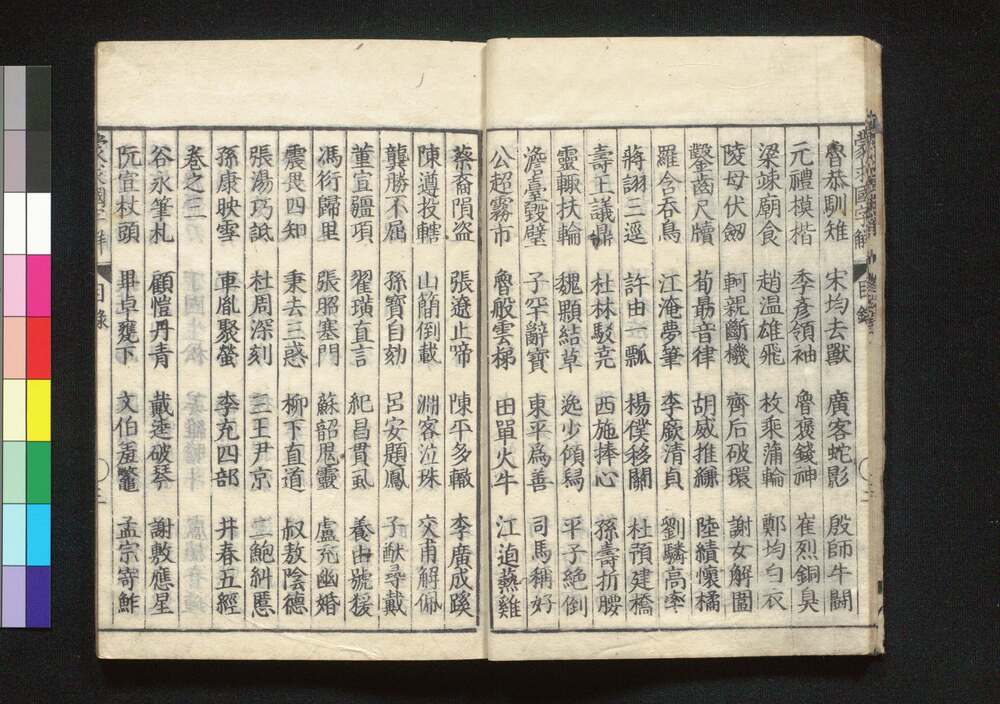 魯恭馴雉 宋均去獸 廣客蛇影 殷師牛鬬
元禮模楷 季彥領袖 魯褒錢神 崔烈銅臭
梁竦廟食 趙溫雄飛 枚乘蒲輪 鄭均白衣
陵母伏劒 軻親斷機 齊后破環 謝女解圍
鑿齒尺牘 荀勗音律 胡威推縑 陸績懷橘
羅含吞鳥 江淹夢筆 李廞清貞 劉驎高率
蔣詡三逕 許由一瓢 楊僕移關 杜預建橋
壽王議鼎 杜林駁堯 西施捧心 孫壽折腰
靈輒扶輪 魏顆結草 逸少傾寫 平子絕倒
澹臺毀璧 子罕辭寶 東平爲善 司馬稱好
公超霧市 魯般雲梯 田單火牛 江逌爇雞
蔡裔隕盜 張遼止啼 陳平多轍 李廣成蹊
陳遵投轄 山簡倒載 淵客泣珠 交甫解佩
龔勝不屈 孫寶自劾 呂安題鳳 子猷尋戴
董宣彊項 翟璜直言 紀昌貫虱 養由號猨
馮衍歸里 張昭塞門 蘇韶鬼靈 盧充幽婚
震畏四知 秉去三惑 柳下直道 叔敖陰德
張湯巧詆 杜周深刻 三王尹京 二鮑糾慝
孫康映雪 車胤聚螢 李充四部 井春五經
卷之三
谷永筆札 顧愷丹青 戴逵破琴 謝敷應星
阮宣杖頭 畢卓甕下 文伯羞鼈 孟宗寄鮓
蒙求國字解 目錄 二